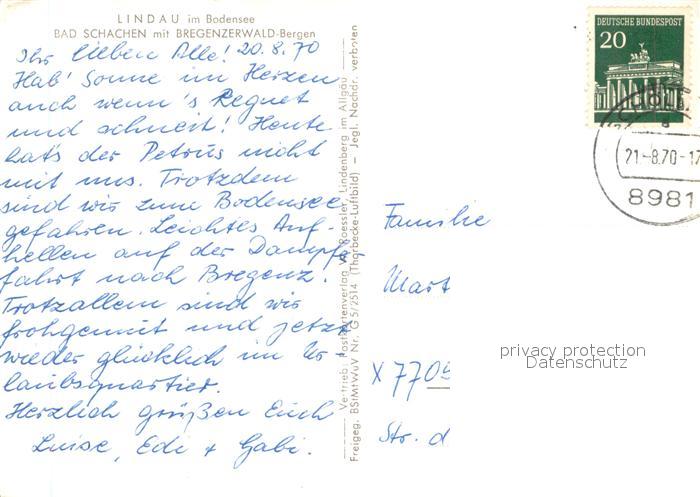 LINDAU im Bodensee
BAD SCHACHEN mit BREGENZERWALD-Bergen
Ihr lieben Alle! 20.8.70
Hab' Sonne im Herzen
auch wenn's Regnet
und schneit! Heute
hat's der Petrus nicht
mit uns. Trotzdem
sind wir zum Bodensee
gefahren. Leichtes Auf-
hellen auf der Dampfer
fahrt nach Bregenz.
Trotzallem sind wir
frohgemut und jetzt
wieder glücklich im Ur
laubsquartier.
Herzlich grüßen Euch
Luise, Edi + Gabi.
Vertrieb: Postkartenverlag Roessler, Lindenberg im Allgäu
Freigeg. BStMtWuV Nr. G5/2514 (Thorbecke-Luftbild) — Jegl. Nachdr. verboten
DEUTSCHE BUNDESPOST
20
21-8.70-17
8981
Familie
Mart
X 7709
Str. d
privacy protection
Datenschutz